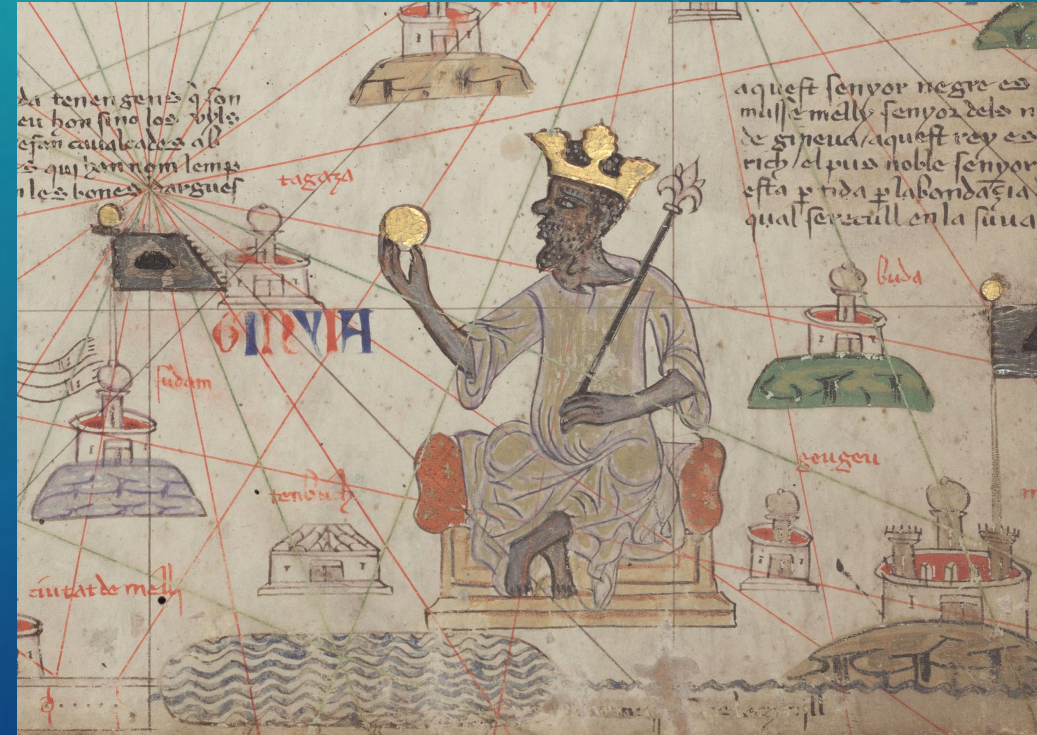 da tenen gens q̇ son
eu hom sino los vyls
efan caualcades ab
s qui han nom lemp
n les bones dargues
aquest senyor negre es
musse melly senyor dels n
de gineua aquest rey es
rich el pus noble senyor
esta ꝑtida ꝑ labondazia
qual se recull en la suua
tagaza
buda
GINYIA
sudam
geugeu
tenbuch
ciutat de melli